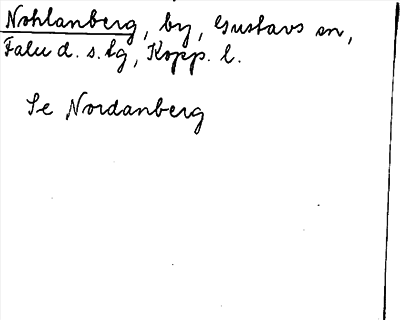 Nohlanberg, by, Gustavs sn,
Falu d. s. lg, Kopp. l.
Se Nordanberg